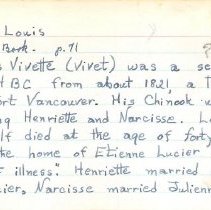 Louis
Book. p. 71
s Vivette (Vivet) was a se
H BC from about 1821, a T
ort Vancouver. His Chinook w
ng Henriette and Narcisse. Lo
lf died at the age of forty
the home of Etienne Lucier
f illness." Henriette married
cier, Narcisse married Julienn